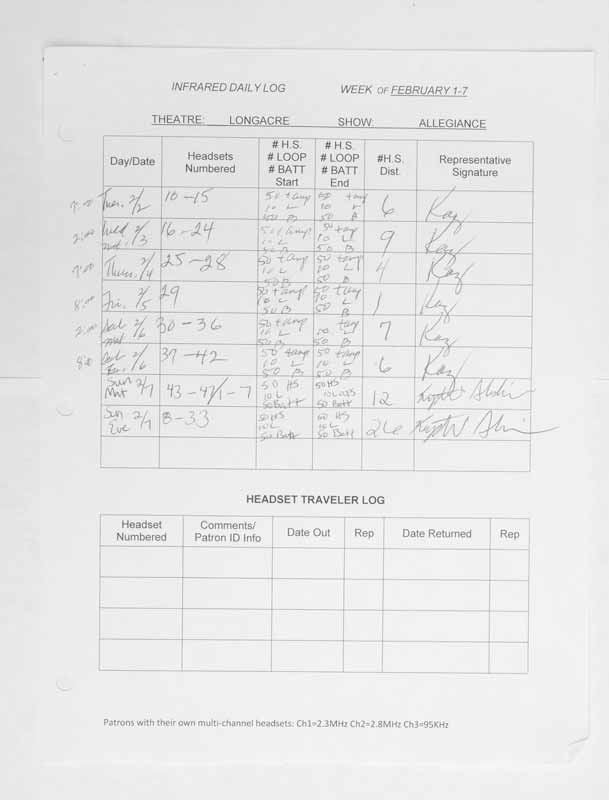 INFRARED DAILY LOG WEEK OF FEBRUARY 1-7
THEATRE: LONGACRE SHOW: ALLEGIANCE
Day/Date Headsets Numbered # H.S. # LOOP # BATT Start # H.S. # LOOP # BATT End #H.S. Dist. Representative Signature
7:00 Tues. 2/2 10-15 50 10 L 50 B 10 50 B 6 Kaz
2:00 Wed mat. 2/3 16-24 50 10 L 50 B 50 10 L 50 B 9 Kaz
7:00 Thurs. 2/4 25-28 50 10 L 50 B 50 10 L 50 B 4 Kaz
8:00 Fri. 2/5 29 50 10 L 50 B 50 10 L 50 B 1 Kaz
2:00 Sat mat 2/6 30-36 50 10 L 50 B 10 L 50 B 7 Kaz
8:00 Sat Ev. 2/6 37-42 50 10 L 50 B 50 10 L 50 B 6 Kaz
Sun Mat 2/7 43-47/1-7 50 HS 10 L 50 Batt 50 HS 10 Loops 50 Batt 12
Sun Eve 2/7 8-33 50 HS 10 L 50 Batt 50 HS 10 L 50 Batt 26
HEADSET TRAVELER LOG
Headset Numbered Comments/ Patron ID Info Date Out Rep Date Returned Rep
Patrons with their own multi-channel headsets: Ch1=2.3MHz Ch2=2.8MHz Ch3=95KHz